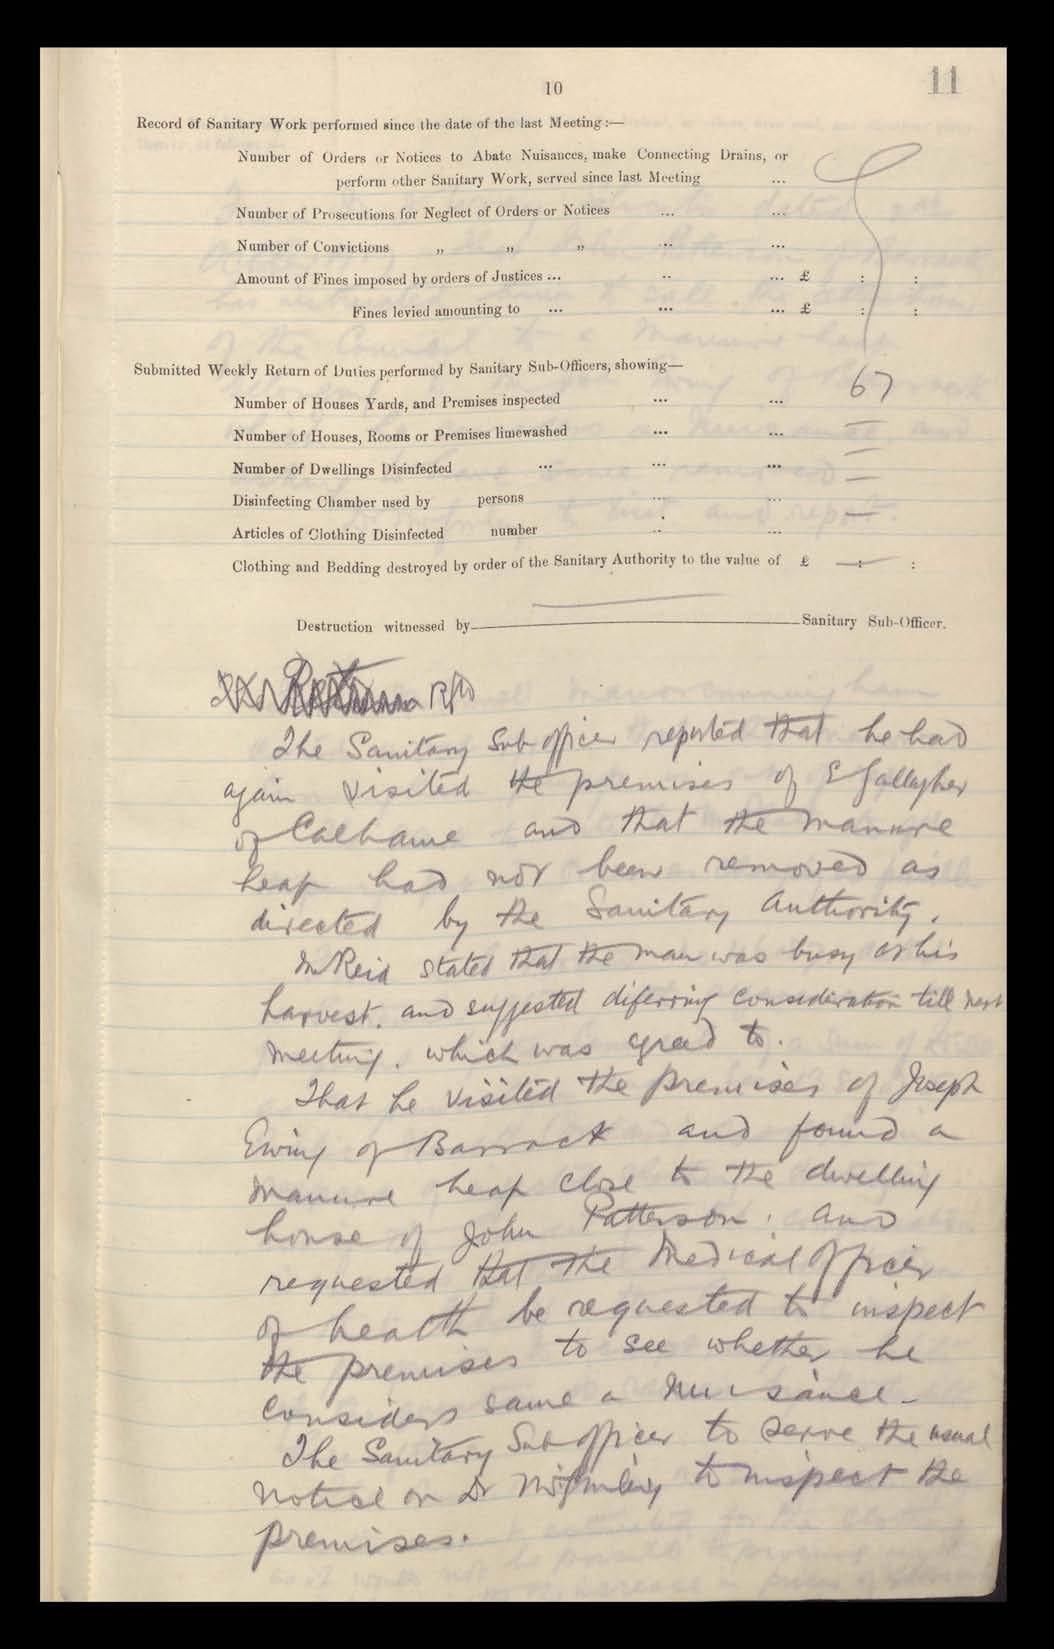 10
11
Record of Sanitary Work performed since the date of the last Meeting:—
Number of Orders or Notices to Abate Nuisances, make Connecting Drains, or
perform other Sanitary Work, served since last Meeting ...
Number of Prosecutions for Neglect of Orders or Notices ... ...
Number of Convictions „ „ „ ... ...
Amount of Fines imposed by orders of Justices ... .. ... £ : :
Fines levied amounting to ... ... ... £ : :
Submitted Weekly Return of Duties performed by Sanitary Sub-Officers, showing—
Number of Houses Yards, and Premises inspected ... ... 67
Number of Houses, Rooms or Premises limewashed ... ... —
Number of Dwellings Disinfected ... ... ... —
Disinfecting Chamber used by persons ... ... —
Articles of Clothing Disinfected number .. ... —
Clothing and Bedding destroyed by order of the Sanitary Authority to the value of £ — : :
Destruction witnessed by Sanitary Sub-Officer.
The Sanitary Sub officer reported that he had
again visited the premises of E Gallagher
of Calhame and that the manure
heap had not been removed as
directed by the Sanitary Authority.
Mr Reid stated that the man was busy at his
harvest. and suggested diferring consideration till next
meeting. which was agreed to.
That he visited the premises of Joseph
Ewing of Barrack and found a
manure heap close to the dwelling
house of John Patterson. and
requested that the Medical Officer
of health be requested to inspect
the premises to see whether he
considers same a nuisance -
The Sanitary Sub officer to serve the usual
notice on Dr to inspect the
premises.